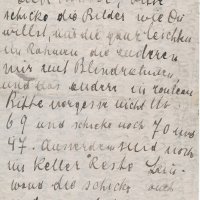 schicke die Bilder wie Du
willst, mit die ganz leichten
im Rahmen die anderen
nur auf Blindrahmen,
und das andere in rouleau
Bitte vergesse nicht No.
69 und schicke noch 70 und
97. Ausserdem sind noch
im Keller Reste Lein-
wand die schicke auch